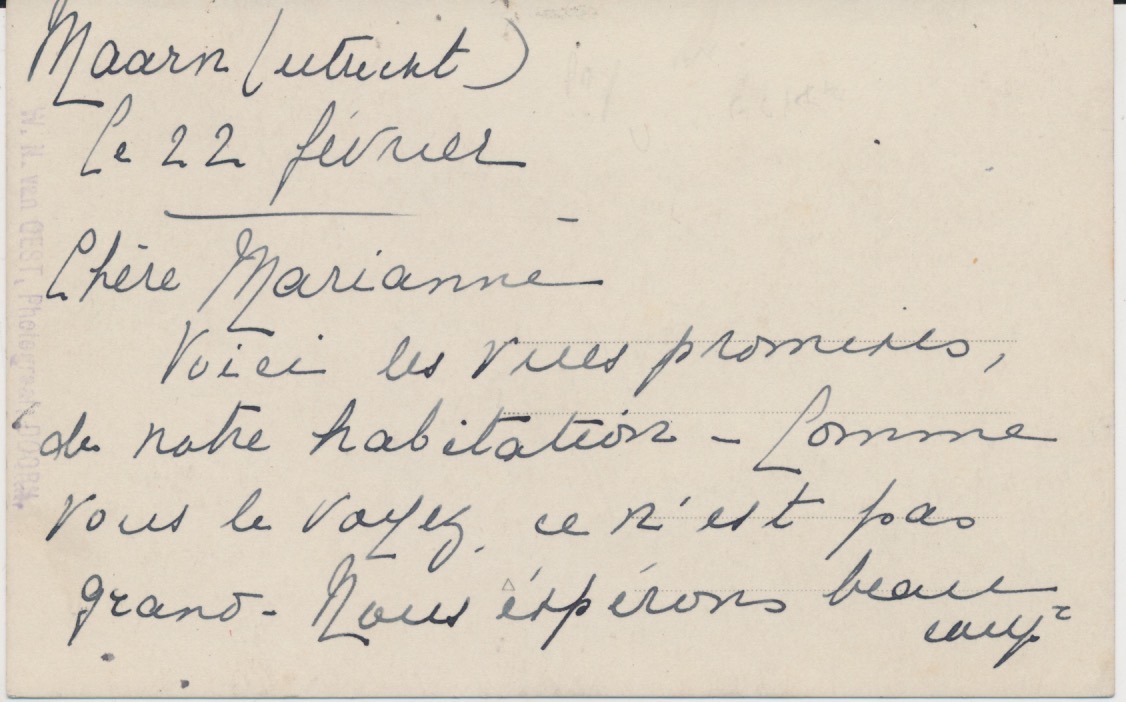 Maarn (utrecht)
Le 22 février
Chère Marianne
Voici les vues promises,
de notre habitation - Comme
vous le voyez, ce n'est pas
grand - Nous éspérons beau
coup
W. H. van OEST, Photograaf, DOORN